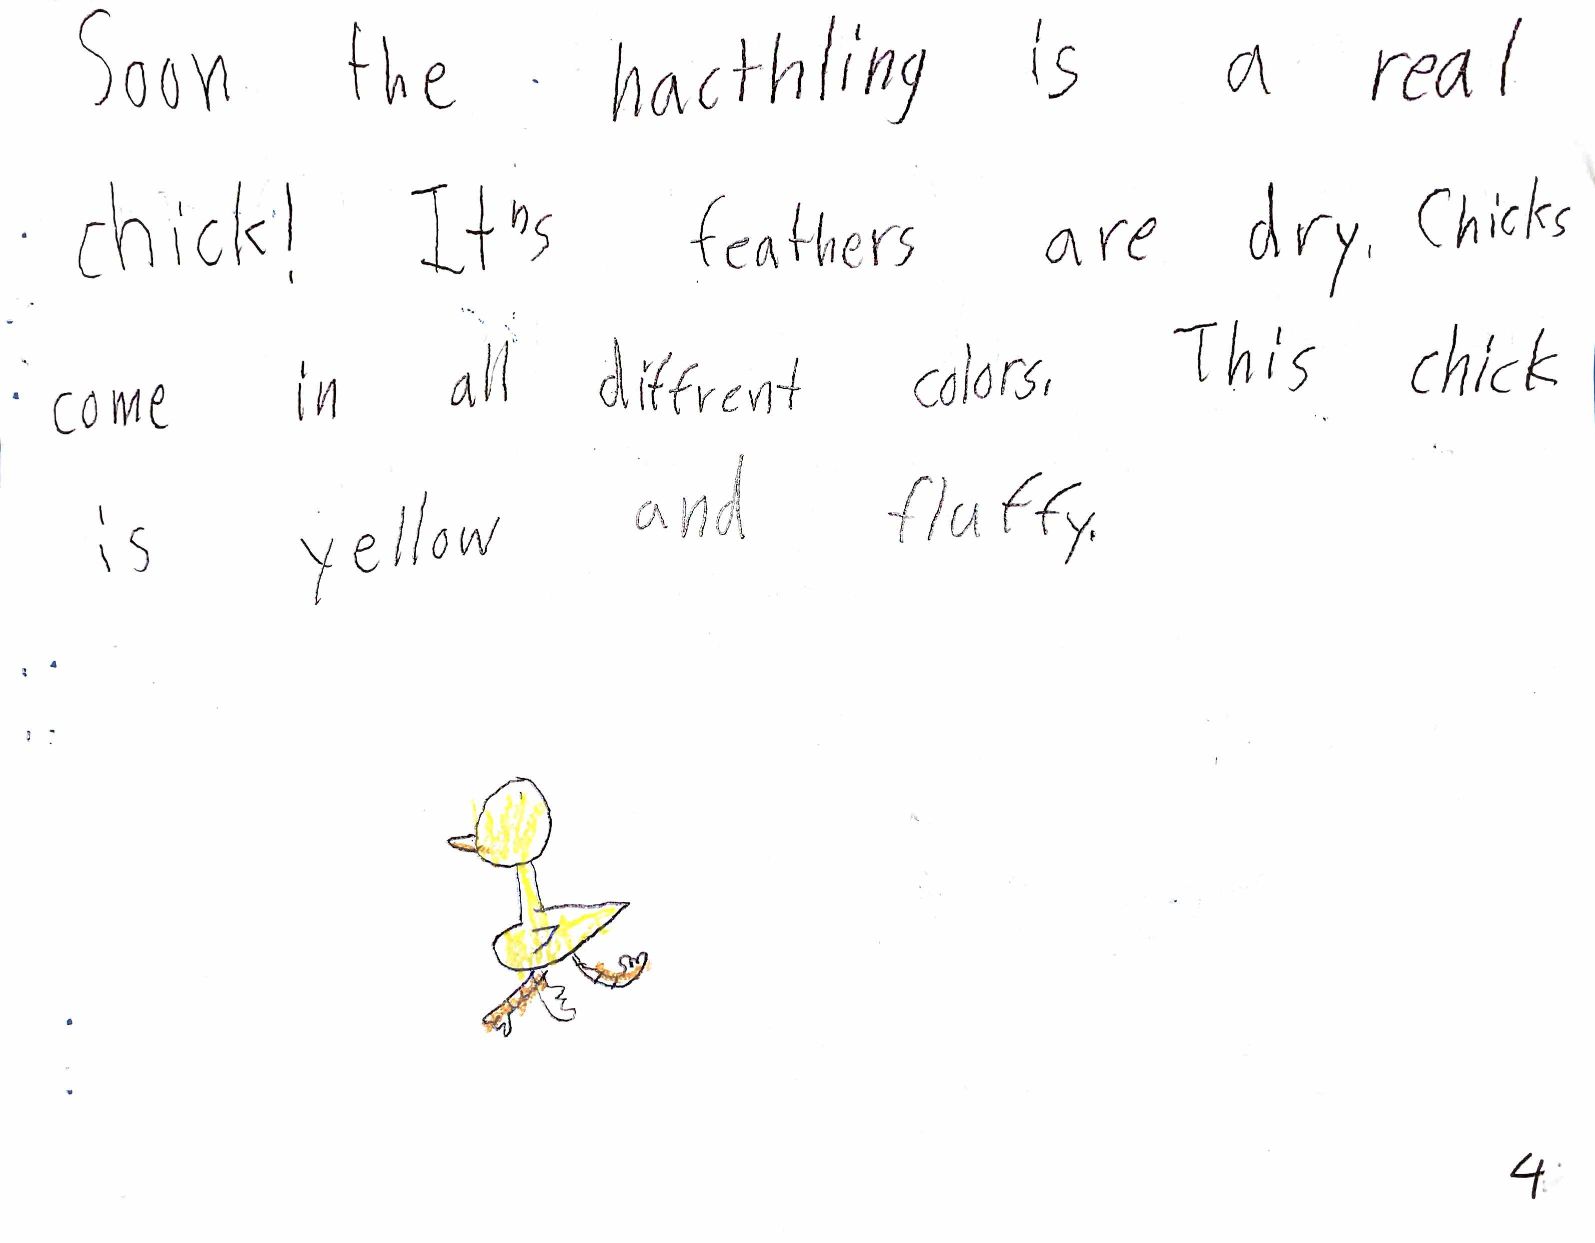 Soon the hacthling is a real
chick! It"s feathers are dry. Chicks
come in all diffrent colors. This chick
is yellow and fluffy.
4